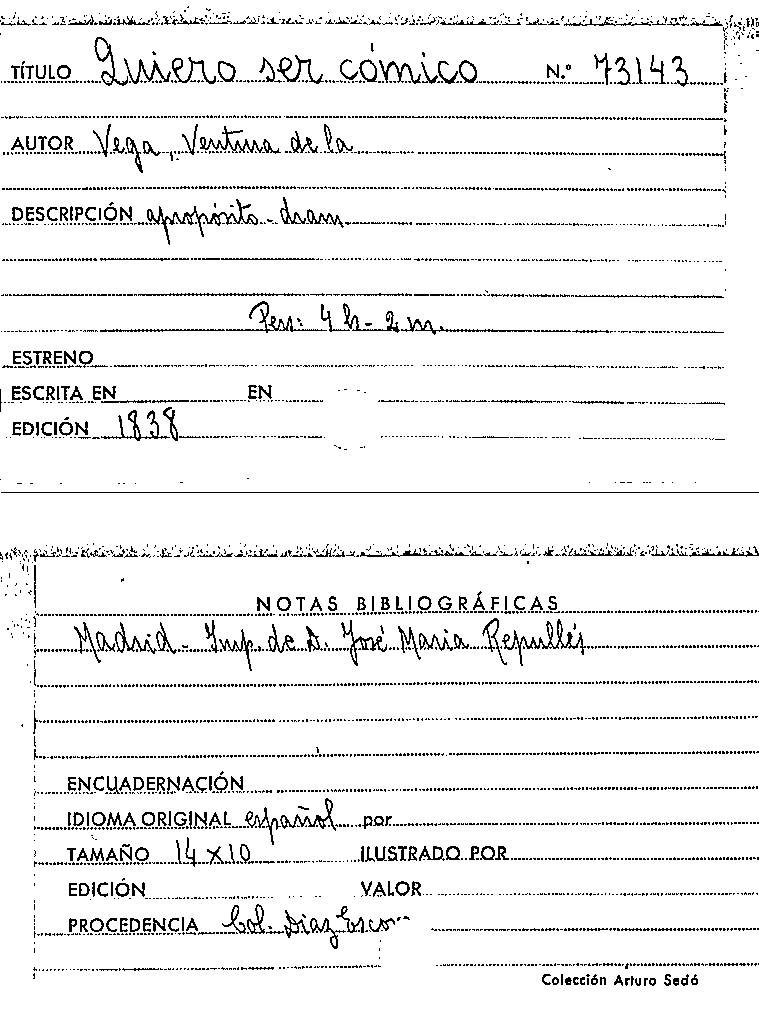 TÍTULO Quiero ser cómico N.º 73143
AUTOR Vega, Ventura de la
DESCRIPCIÓN apropósito-dram.
Pers: 4 h - 2 m.
ESTRENO
ESCRITA EN EN
EDICIÓN 1838
NOTAS BIBLIOGRÁFICAS
Madrid - Imp. de D. José Maria Repullés
ENCUADERNACIÓN
IDIOMA ORIGINAL español por
TAMAÑO 14 x 10 ILUSTRADO POR
EDICIÓN VALOR
PROCEDENCIA Col. Díaz Esco
Colección Arturo Sedó